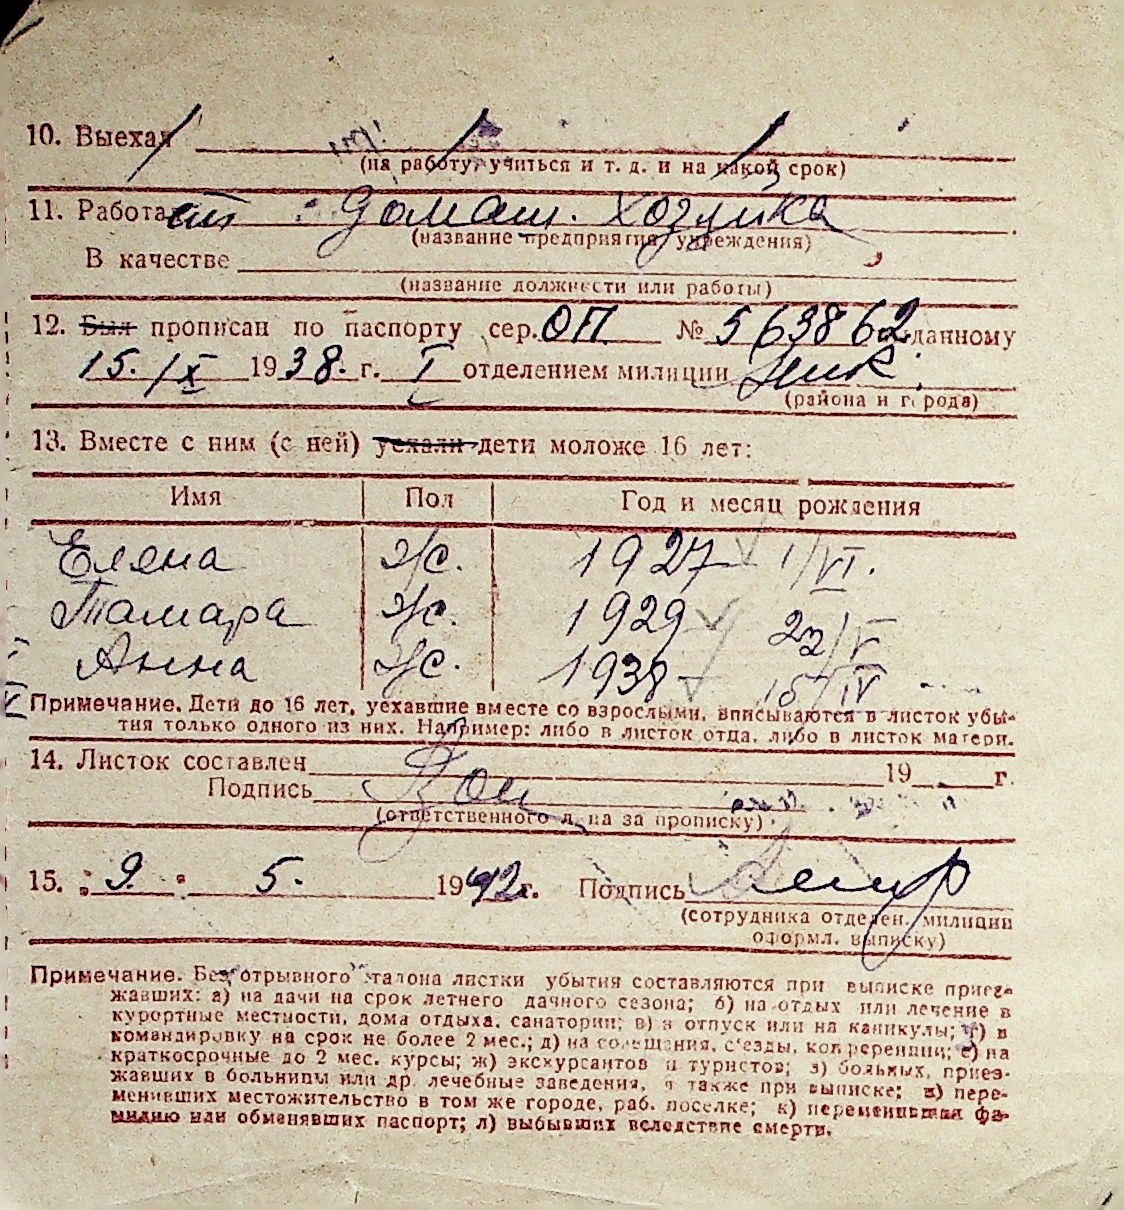 10. Выехал
(на работу, учиться и т. д. и на какой срок)
11. Работает домаш. хозяйка
(название предприятия, учреждения)
В качестве
(название должности или работы)
12. Был прописан по паспорту сер. ОП № 563862 выданному
15. IX 1938. г. I отделением милиции
(района и города)
13. Вместе с ним (с ней) уехали дети моложе 16 лет:
Имя Пол Год и месяц рождения
Елена ж. 1927 1/VI.
Тамара ж. 1929 22/V
Анна ж. 1938 15/IV
Примечание. Дети до 16 лет, уехавшие вместе со взрослыми, вписываются в листок убы-
тия только одного из них. Например: либо в листок отца, либо в листок матери.
14. Листок составлен 19 г.
Подпись
(ответственного лица за прописку)
15. 9. 5. 1942 г. Подпись
(сотрудника отделен. милиции
оформл. выписку)
Примечание. Без отрывного талона листки убытия составляются при выписке приез-
жавших: а) на дачи на срок летнего дачного сезона; б) на отдых или лечение в
курортные местности, дома отдыха, санатории; в) в отпуск или на каникулы; г) в
командировку на срок не более 2 мес.; д) на совещания, съезды, конференции; е) на
краткосрочные до 2 мес. курсы; ж) экскурсантов и туристов; з) больных, приез-
жавших в больницы или др. лечебные заведения, а также при выписке; и) пере-
менивших местожительство в том же городе, раб. поселке; к) переменивших фа-
милию или обменявших паспорт; л) выбывших вследствие смерти.